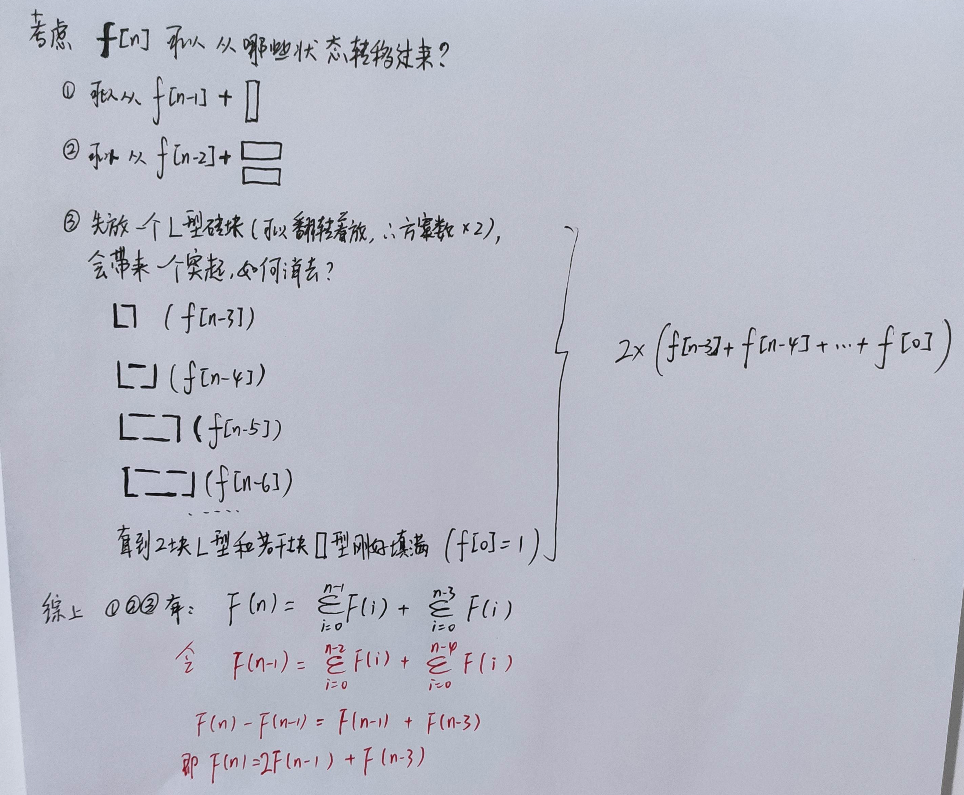 考虑 f[n] 可以从哪些状态转移过来?
① 可以从 f[n-1] +
② 可以从 f[n-2] +
③ 先放一个L型砖块(可以翻转着放,∴方案数×2),
会带来一个突起,如何消去?
(f[n-3])
(f[n-4])
(f[n-5])
(f[n-6])
......
直到2块L型和若干块▯型刚好填满 (f[0]=1)
2×(f[n-3]+f[n-4]+…+f[0])
综上 ①②③有: F(n) = ∑_{i=0}^{n-1} F(i) + ∑_{i=0}^{n-3} F(i)
令 F(n-1) = ∑_{i=0}^{n-2} F(i) + ∑_{i=0}^{n-4} F(i)
F(n) - F(n-1) = F(n-1) + F(n-3)
即 F(n)=2F(n-1) + F(n-3)